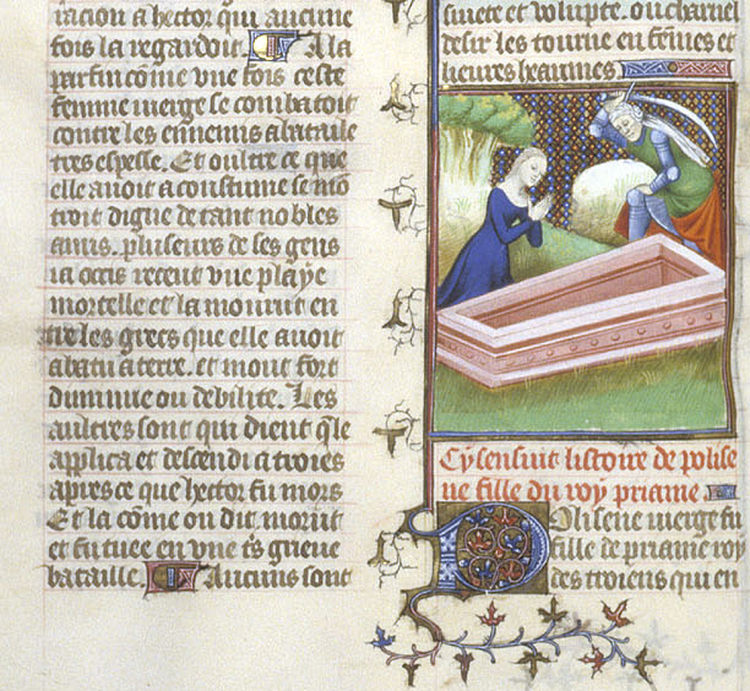 racion a hector qui aucune
fois la regardoit. A la
parfin cõme vne fois ceste
femme vierge se combatoit
contre les ennemis a bataile
tres espesse. Et oultre ce que
elle auoit acoustume se mõ
troit digne de tant nobles
amis. plusieurs de ses gens
ia occis receut vne playe
mortelle et la mourut en
tre les grecs que elle auoit
abatu a terre. et mout fort
diminue ou debilite. Les
aultres sont qui dient q̃ le
applica et descendi a troies
apres ce que hector fu mors
Et la cõme on dit morut
et fu tuee en vne t̃s grieue
bataille. Aucuns sont
suiete et volupte. ou charnel
desir les tourne en fẽmes et
lieures heaumes
Cy sensuit listoire de polise
ne fille du roy priame
Polisene vierge fu
fille de priame roy
des troiens qui en